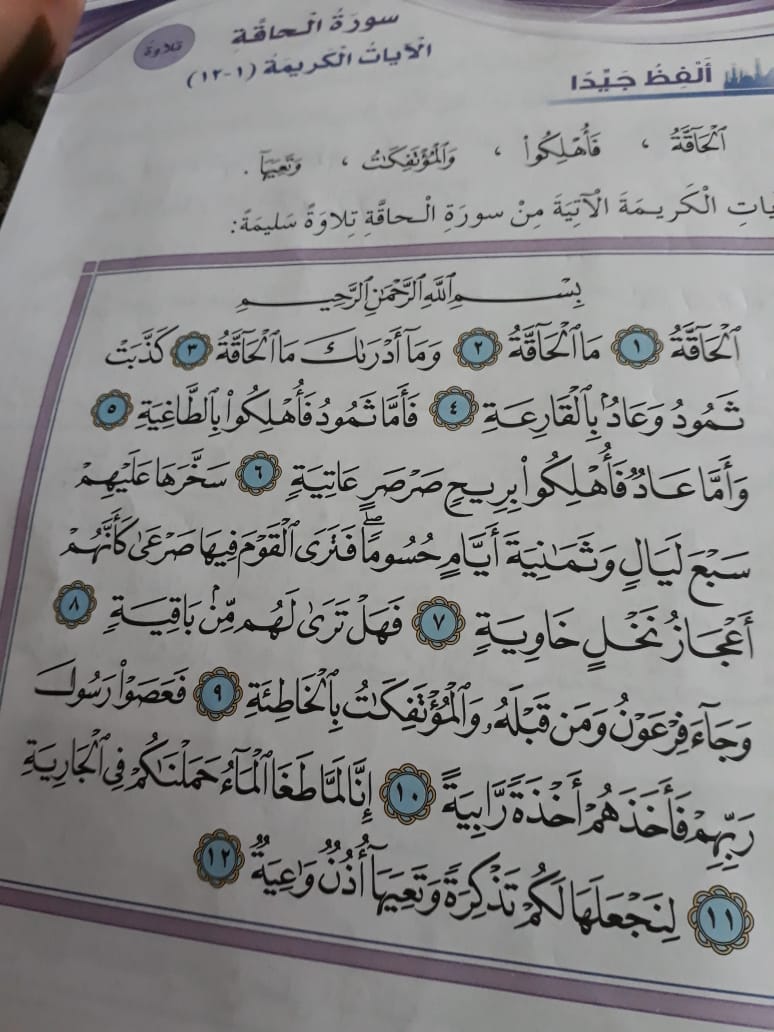 سورَةُ الْحاقَّةِ
الْآياتُ الْكَريمَةُ (١-١٢)
تلاوة
أَلْفِظُ جَيِّدًا
ٱلْحَآقَّةُ ، فَأُهْلِكُوا۟ ، وَٱلْمُؤْتَفِكَـٰتُ ، وَتَعِيَهَآ .
الْكَريمَةَ الْآتِيَةَ مِنْ سورَةِ الْحاقَّةِ تِلاوَةً سَليمَةً:
بِسْمِ ٱللَّهِ ٱلرَّحْمَـٰنِ ٱلرَّحِيمِ
ٱلْحَآقَّةُ ١ مَا ٱلْحَآقَّةُ ٢ وَمَآ أَدْرَىٰكَ مَا ٱلْحَآقَّةُ ٣ كَذَّبَتْ
ثَمُودُ وَعَادٌۢ بِٱلْقَارِعَةِ ٤ فَأَمَّا ثَمُودُ فَأُهْلِكُوا۟ بِٱلطَّاغِيَةِ ٥
وَأَمَّا عَادٌ فَأُهْلِكُوا۟ بِرِيحٍ صَرْصَرٍ عَاتِيَةٍ ٦ سَخَّرَهَا عَلَيْهِمْ
سَبْعَ لَيَالٍ وَثَمَـٰنِيَةَ أَيَّامٍ حُسُومًا ۖ فَتَرَى ٱلْقَوْمَ فِيهَا صَرْعَىٰ كَأَنَّهُمْ
أَعْجَازُ نَخْلٍ خَاوِيَةٍ ٧ فَهَلْ تَرَىٰ لَهُم مِّنۢ بَاقِيَةٍ ٨
وَجَآءَ فِرْعَوْنُ وَمَن قَبْلَهُۥ وَٱلْمُؤْتَفِكَـٰتُ بِٱلْخَاطِئَةِ ٩ فَعَصَوْا۟ رَسُولَ
رَبِّهِمْ فَأَخَذَهُمْ أَخْذَةً رَّابِيَةً ١٠ إِنَّا لَمَّا طَغَا ٱلْمَآءُ حَمَلْنَـٰكُمْ فِى ٱلْجَارِيَةِ
١١ لِنَجْعَلَهَا لَكُمْ تَذْكِرَةً وَتَعِيَهَآ أُذُنٌ وَٰعِيَةٌ ١٢